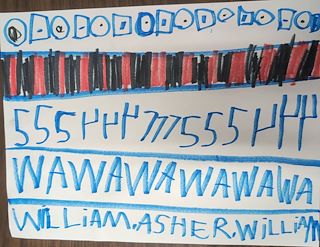 555444777555444
WAWAWAWAWAWA
WiLLiAM.ASHER.WiLLiAM